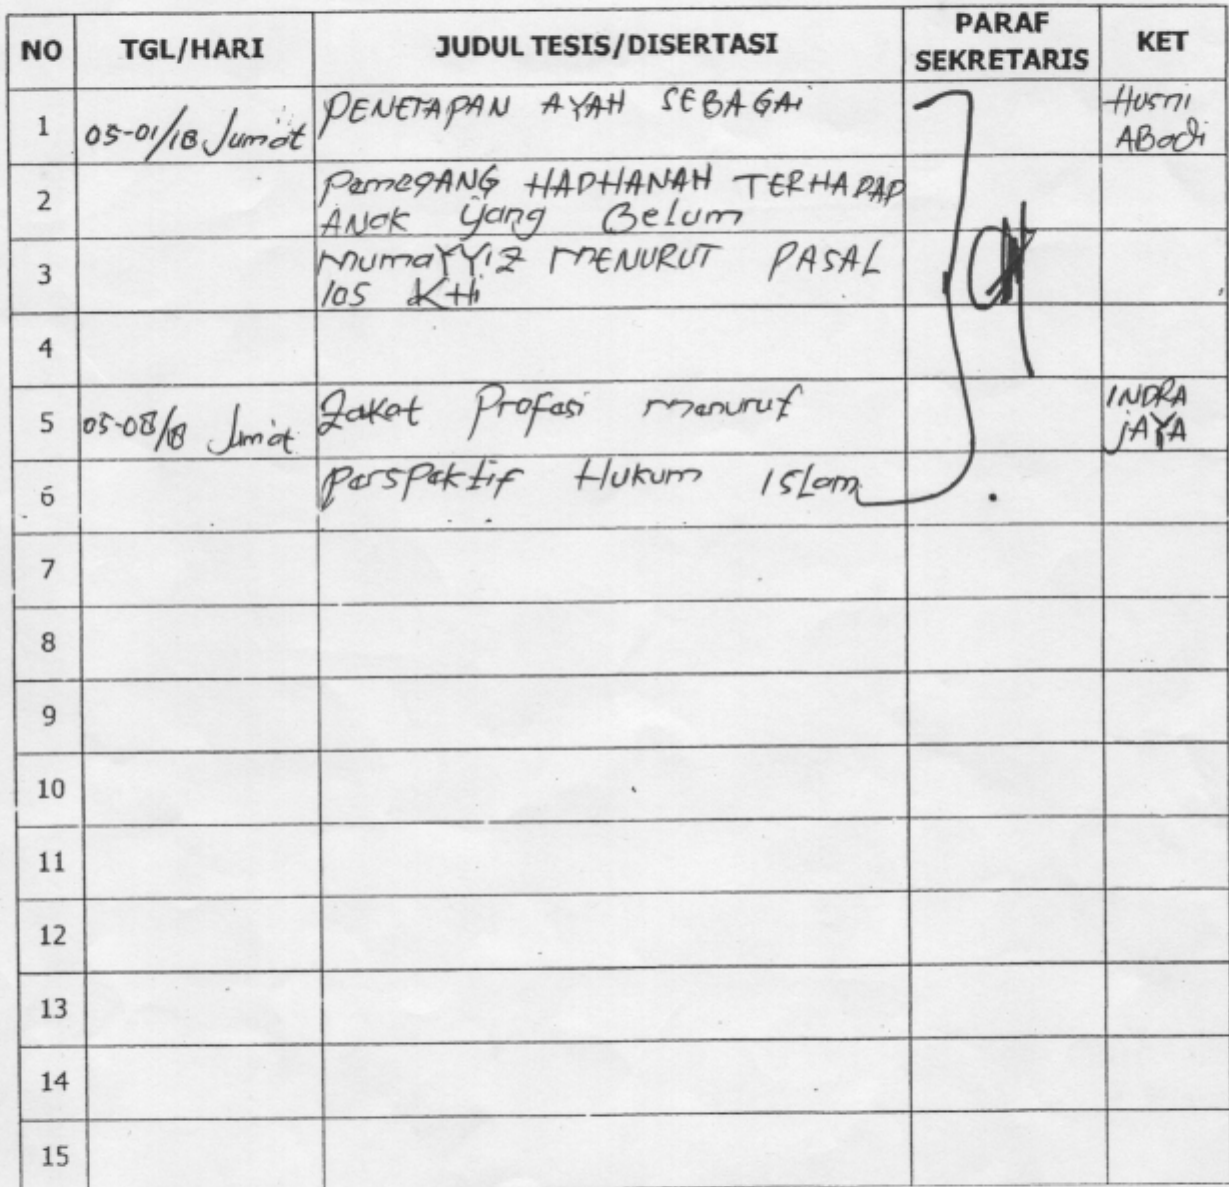 NO TGL/HARI JUDUL TESIS/DISERTASI PARAF SEKRETARIS KET
1 05-01/18 Jum'at PENETAPAN AYAH SEBAGAi Husni ABadi
2 PemegANG HADHANAH TERHADAP
ANak yang Belum
3 mumaYYiz MENURUT PASAL
105 KHi
4
5 05-08/18 Jum'at Zakat Profesi menurut INDRA JAYA
6 PersPektif Hukum ISLam
7
8
9
10
11
12
13
14
15